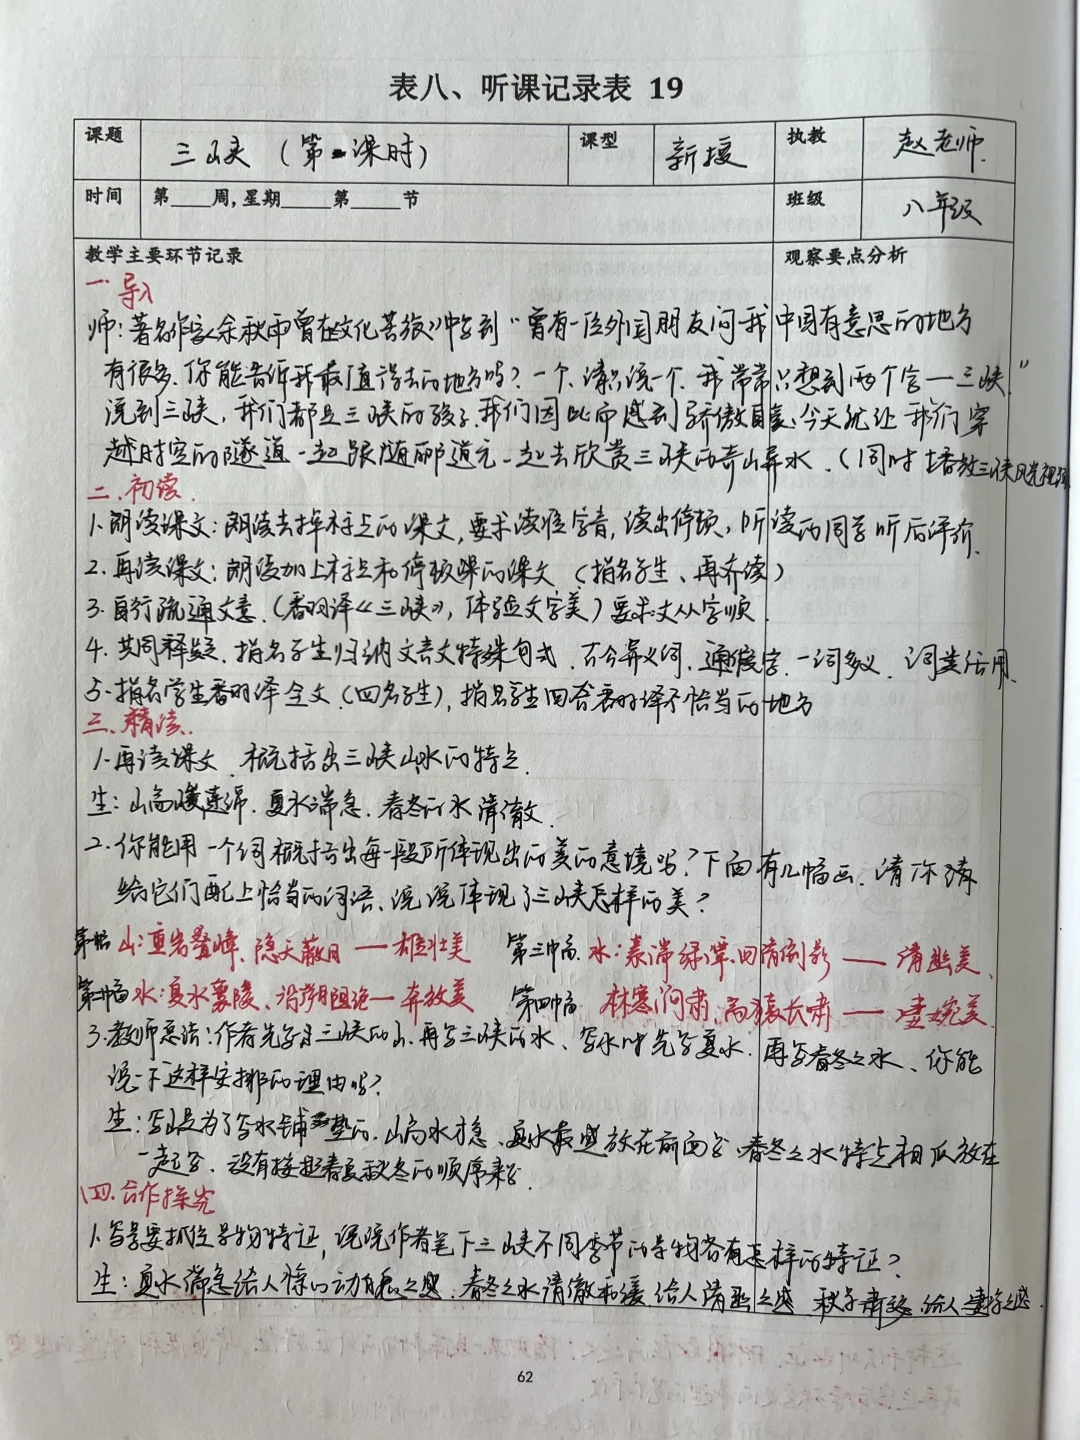 表八、听课记录表 19
课题 三峡（第一课时） 课型 新授 执教 赵老师
时间 第____周,星期____第____节 班级 八年级
教学主要环节记录 观察要点分析
一 导入
师:著名作家余秋雨曾在文化苦旅》中写到"曾有一位外国朋友问我中国有意思的地方
有很多.你能告诉我最值得去的地方吗?一个.请只说一个.我常常只想到两个字—三峡"
说到三峡,我们都是三峡的孩子.我们因此而感到骄傲自豪.今天就让我们穿
越时空的隧道一起跟随郦道元一起去欣赏三峡的奇山异水.(同时播放三峡风光视频
二.初读.
1.朗读课文:朗读去掉标点的课文,要求读准字音,读出停顿,听读的同学听后评价.
2.再读课文:朗读加上标点和停顿课的课文（指名学生、再齐读）
3.自行疏通文意.(翻译《三峡》,体验文字美)要求文从字顺.
4.共同释疑.指名学生归纳文言文特殊句式.古今异义词.通假字.一词多义.词类活用.
5.指名学生翻译全文(四名学生),指名学生回答翻译不恰当的地方
三.精读.
1.再读课文.概括出三峡山水的特点.
生:山高峻连绵.夏水湍急.春冬的水清澈.
2.你能用一个词概括出每一段所体现出的美的意境吗?下面有几幅画.请你猜
给它们配上恰当的词语、说说体现了三峡怎样的美?
第一幅 山:重岩叠嶂、隐天蔽日 — 雄壮美 第三幅 水:素湍绿潭.回清倒影 — 清幽美.
第二幅 水:夏水襄陵、沿溯阻绝— 奔放美 第四幅 林寒涧肃,高猿长啸 — 凄婉美.
3.教师总结:作者先写三峡的山.再写三峡的水、写水时先写夏水.再写春冬之水、你能
说一下这样安排的理由吗?
生:写山是为了写水铺垫的.山高水急.夏水最盛放在前面写.春冬之水特点相似放在
一起写.没有按照春夏秋冬的顺序来写.
四.合作探究
1.写景要抓住景物特征,说说作者笔下三峡不同季节的景物各有怎样的特征?
生:夏水湍急给人惊心动魄之感.春冬之水清澈和缓.给人清幽之感 秋季肃 给人凄 之感.
62